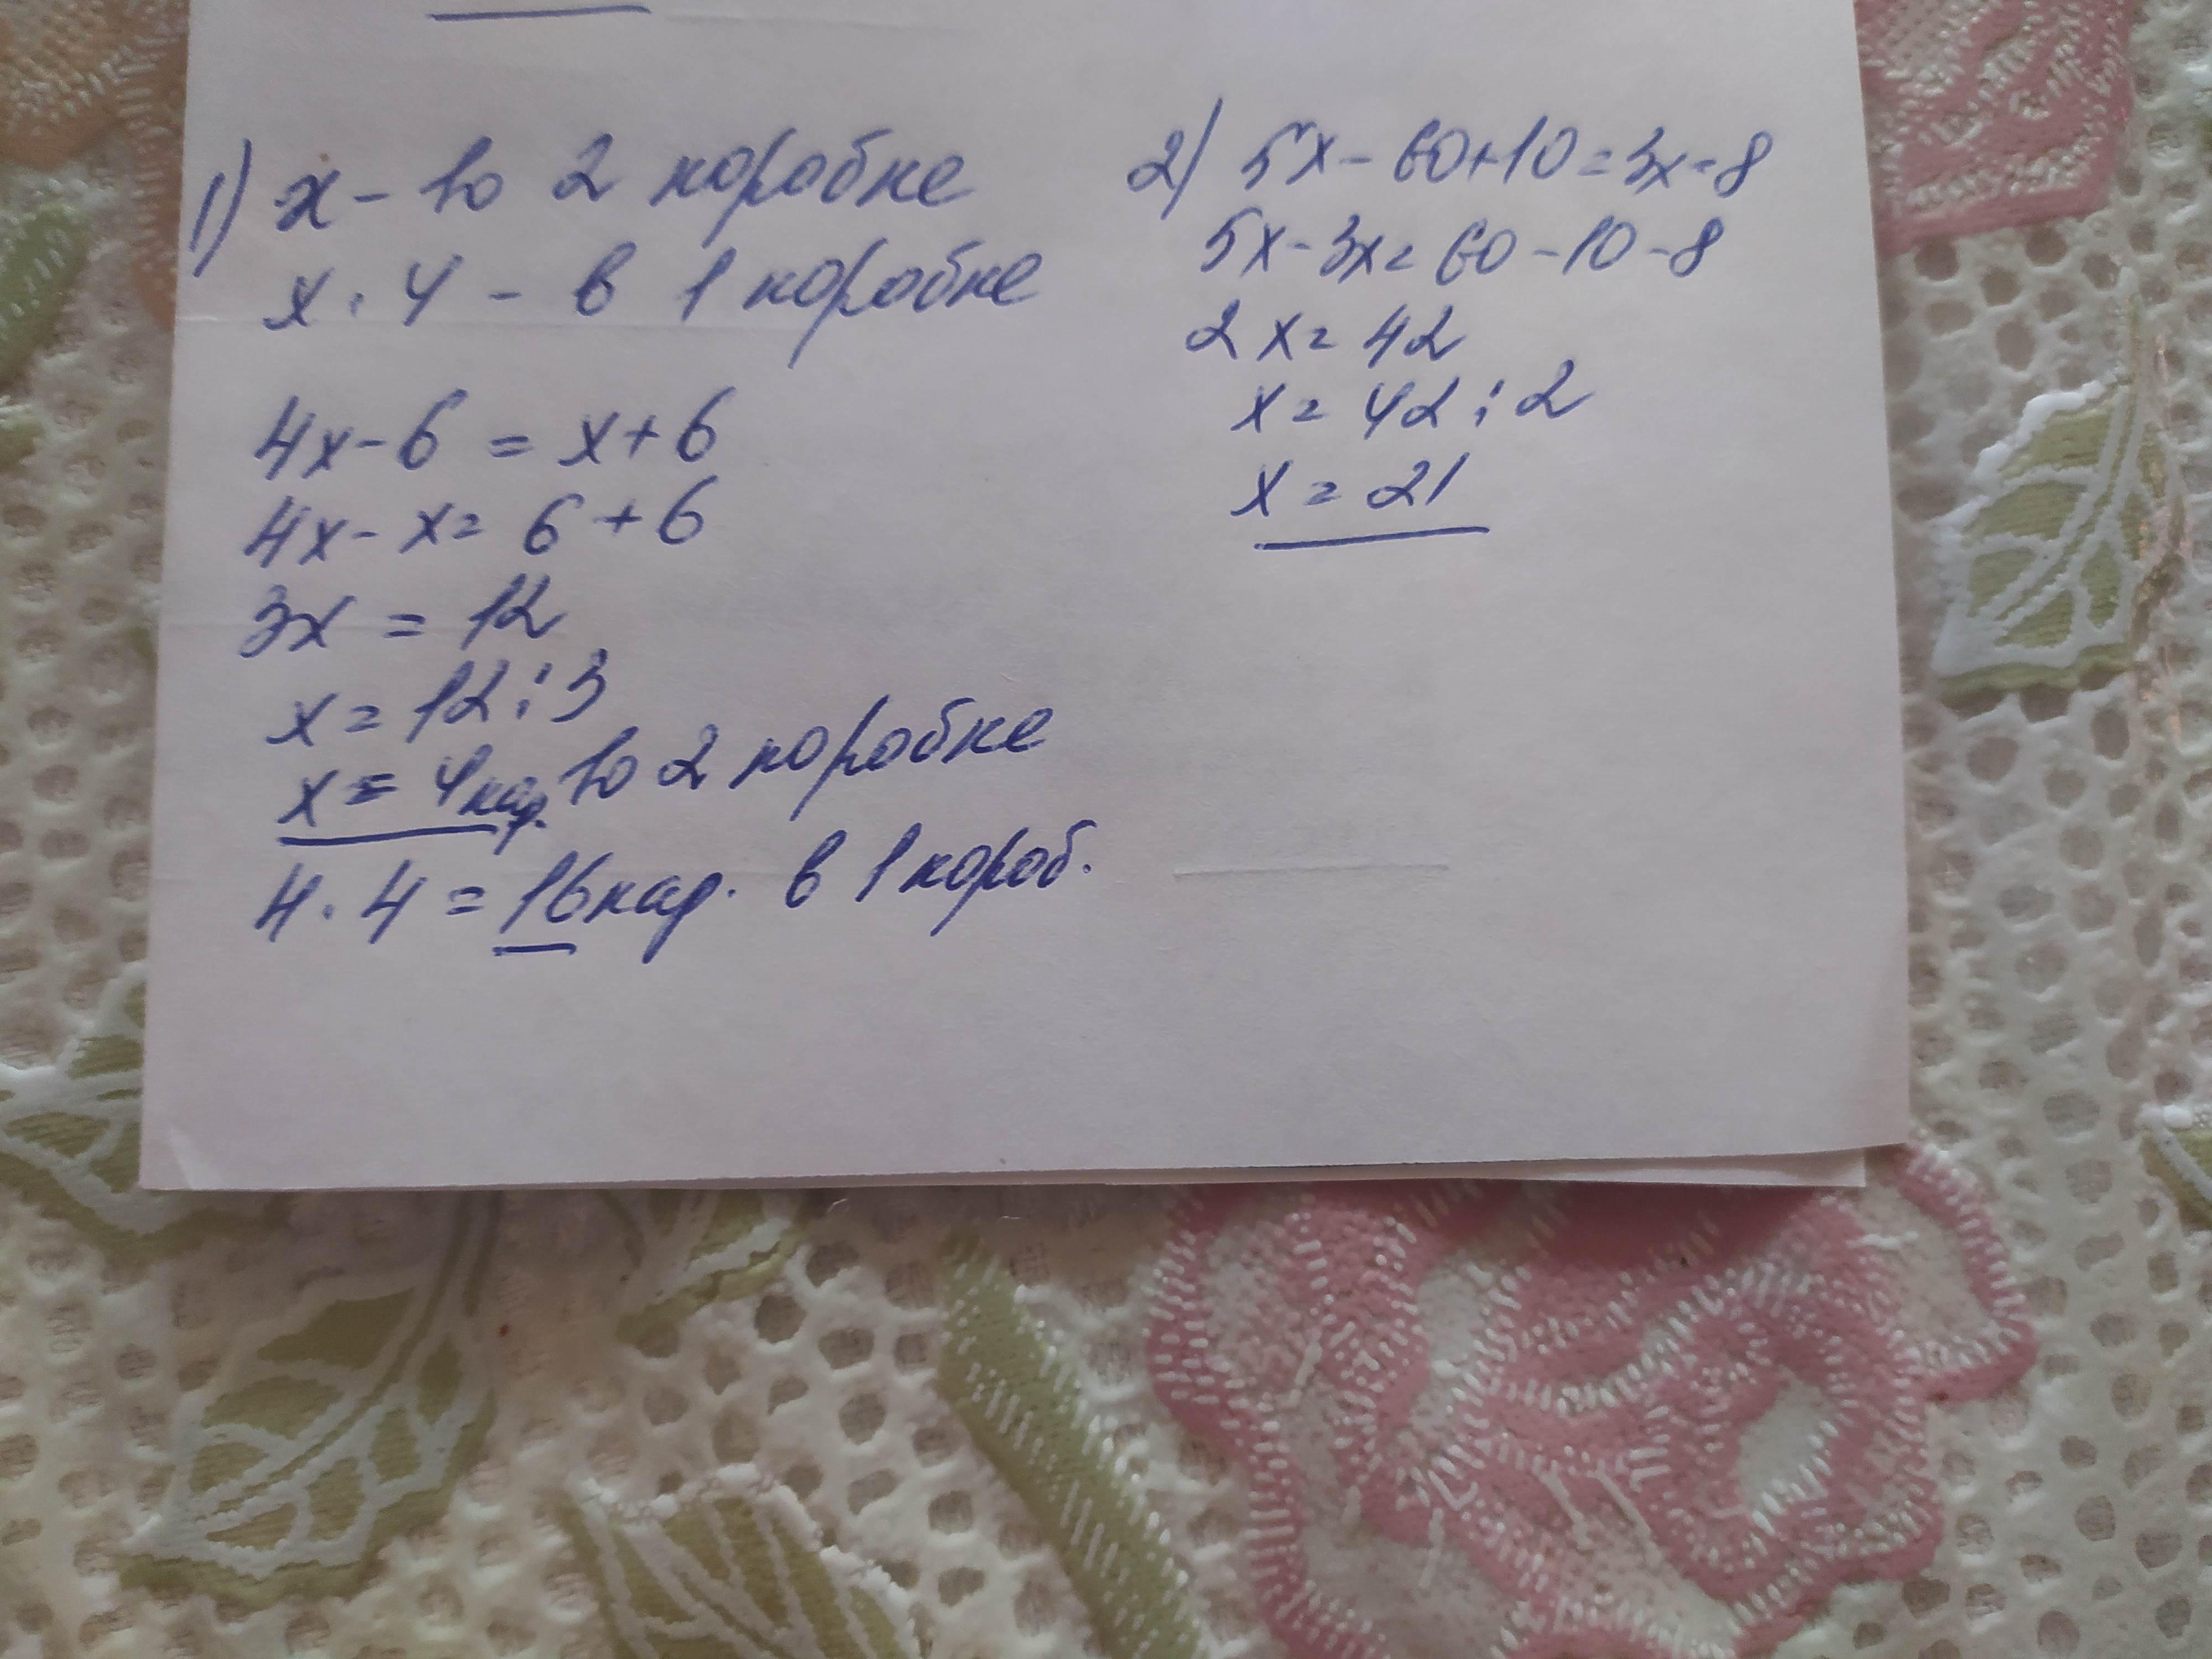 1) x - во 2 коробке
x · 4 - в 1 коробке
4x - 6 = x + 6
4x - x = 6 + 6
3x = 12
x = 12 : 3
x = 4 кар. во 2 коробке
4 · 4 = 16 кар. в 1 короб.
2) 5x - 60 + 10 = 3x - 8
5x - 3x = 60 - 10 - 8
2x = 42
x = 42 : 2
x = 21